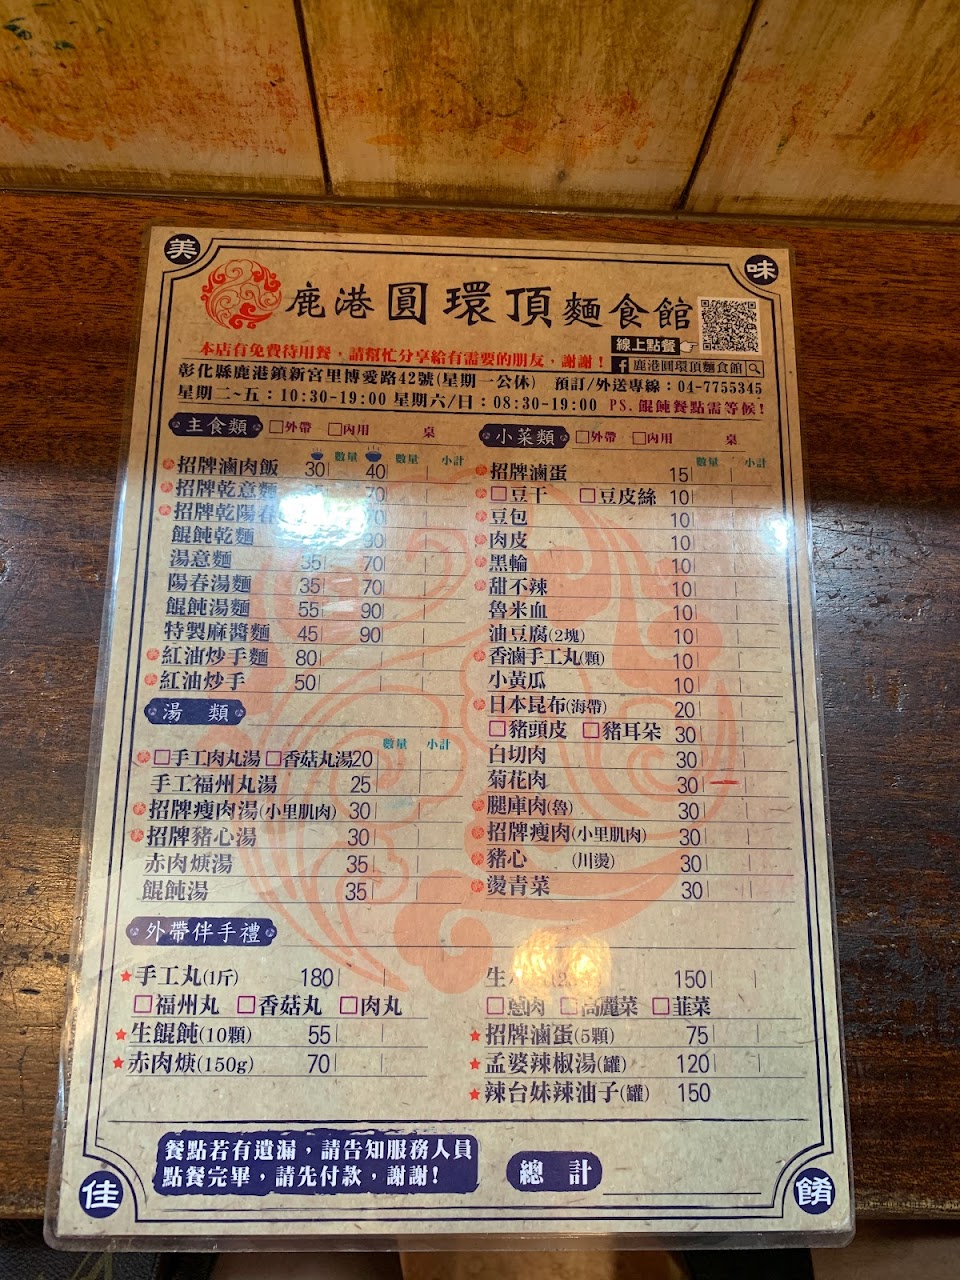 美
味
鹿港圓環頂麵食館
線上點餐
本店有免費待用餐，請幫忙分享給有需要的朋友，謝謝！
f 鹿港圓環頂麵食館
彰化縣鹿港鎮新宮里博愛路42號(星期一公休) 預訂/外送專線：04-7755345
星期二~五：10:30-19:00 星期六/日：08:30-19:00 PS.餛飩餐點需等候!
主食類 □外帶 □內用 桌
數量 數量 小計
招牌滷肉飯 30 40
招牌乾意麵 70
招牌乾陽春 70
餛飩乾麵
湯意麵 35 70
陽春湯麵 35 70
餛飩湯麵 55 90
特製麻醬麵 45 90
紅油炒手麵 80
紅油炒手 50
湯 類
數量 小計
□手工肉丸湯 □香菇丸湯 20
手工福州丸湯 25
招牌瘦肉湯(小里肌肉) 30
招牌豬心湯 30
赤肉焿湯 35
餛飩湯 35
小菜類 □外帶 □內用 桌
數量 小計
招牌滷蛋 15
□豆干 □豆皮絲 10
豆包 10
肉皮 10
黑輪 10
甜不辣 10
魯米血 10
油豆腐(2塊) 10
香滷手工丸(顆) 10
小黃瓜 10
日本昆布(海帶) 20
□豬頭皮 □豬耳朵 30
白切肉 30
菊花肉 30
腿庫肉(魯) 30
招牌瘦肉(小里肌肉) 30
豬心 (川燙) 30
燙青菜 30
外帶伴手禮
★手工丸(1斤) 180
□福州丸 □香菇丸 □肉丸
★生餛飩(10顆) 55
★赤肉焿(150g) 70
生 150
□蔥肉 □高麗菜 □韮菜
★招牌滷蛋(5顆) 75
★孟婆辣椒湯(罐) 120
★辣台妹辣油子(罐) 150
餐點若有遺漏，請告知服務人員
點餐完畢，請先付款，謝謝！
總 計
佳
餚